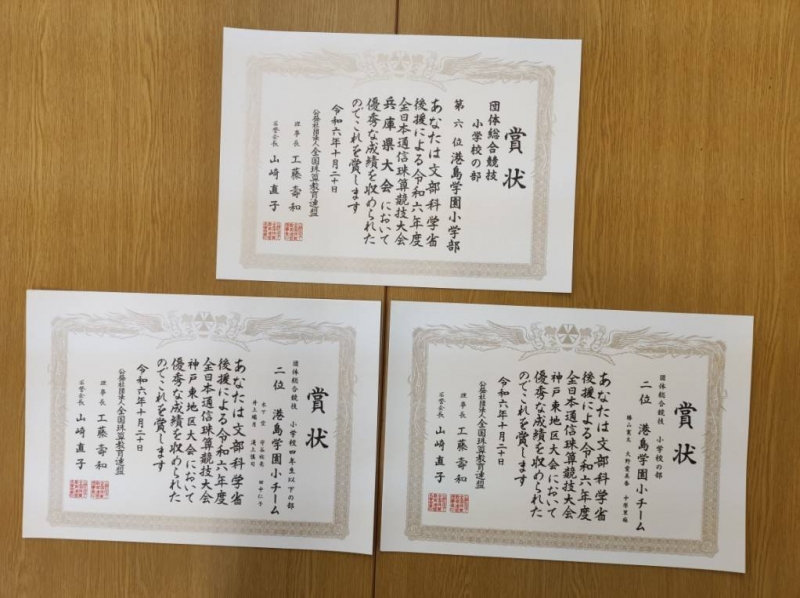 賞状
団体総合競技
小学校の部
第六位 港島学園小学部
あなたは文部科学省
後援による令和六年度
全日本通信珠算競技大会
兵庫県大会において
優秀な成績を収められた
のでこれを賞します
令和六年十月二十日
公益社団法人全国珠算教育連盟
理事長 工藤壽和
名誉会長 山崎直子
賞状
団体総合競技 小学校四年生以下の部
二位 港島学園小チーム
あなたは文部科学省
後援による令和六年度
全日本通信珠算競技大会
神戸東地区大会において
優秀な成績を収められた
のでこれを賞します
令和六年十月二十日
公益社団法人全国珠算教育連盟
理事長 工藤壽和
名誉会長 山崎直子
賞状
団体総合競技 小学校の部
二位 港島学園小チーム
あなたは文部科学省
後援による令和六年度
全日本通信珠算競技大会
神戸東地区大会において
優秀な成績を収められた
のでこれを賞します
令和六年十月二十日
公益社団法人全国珠算教育連盟
理事長 工藤壽和
名誉会長 山崎直子